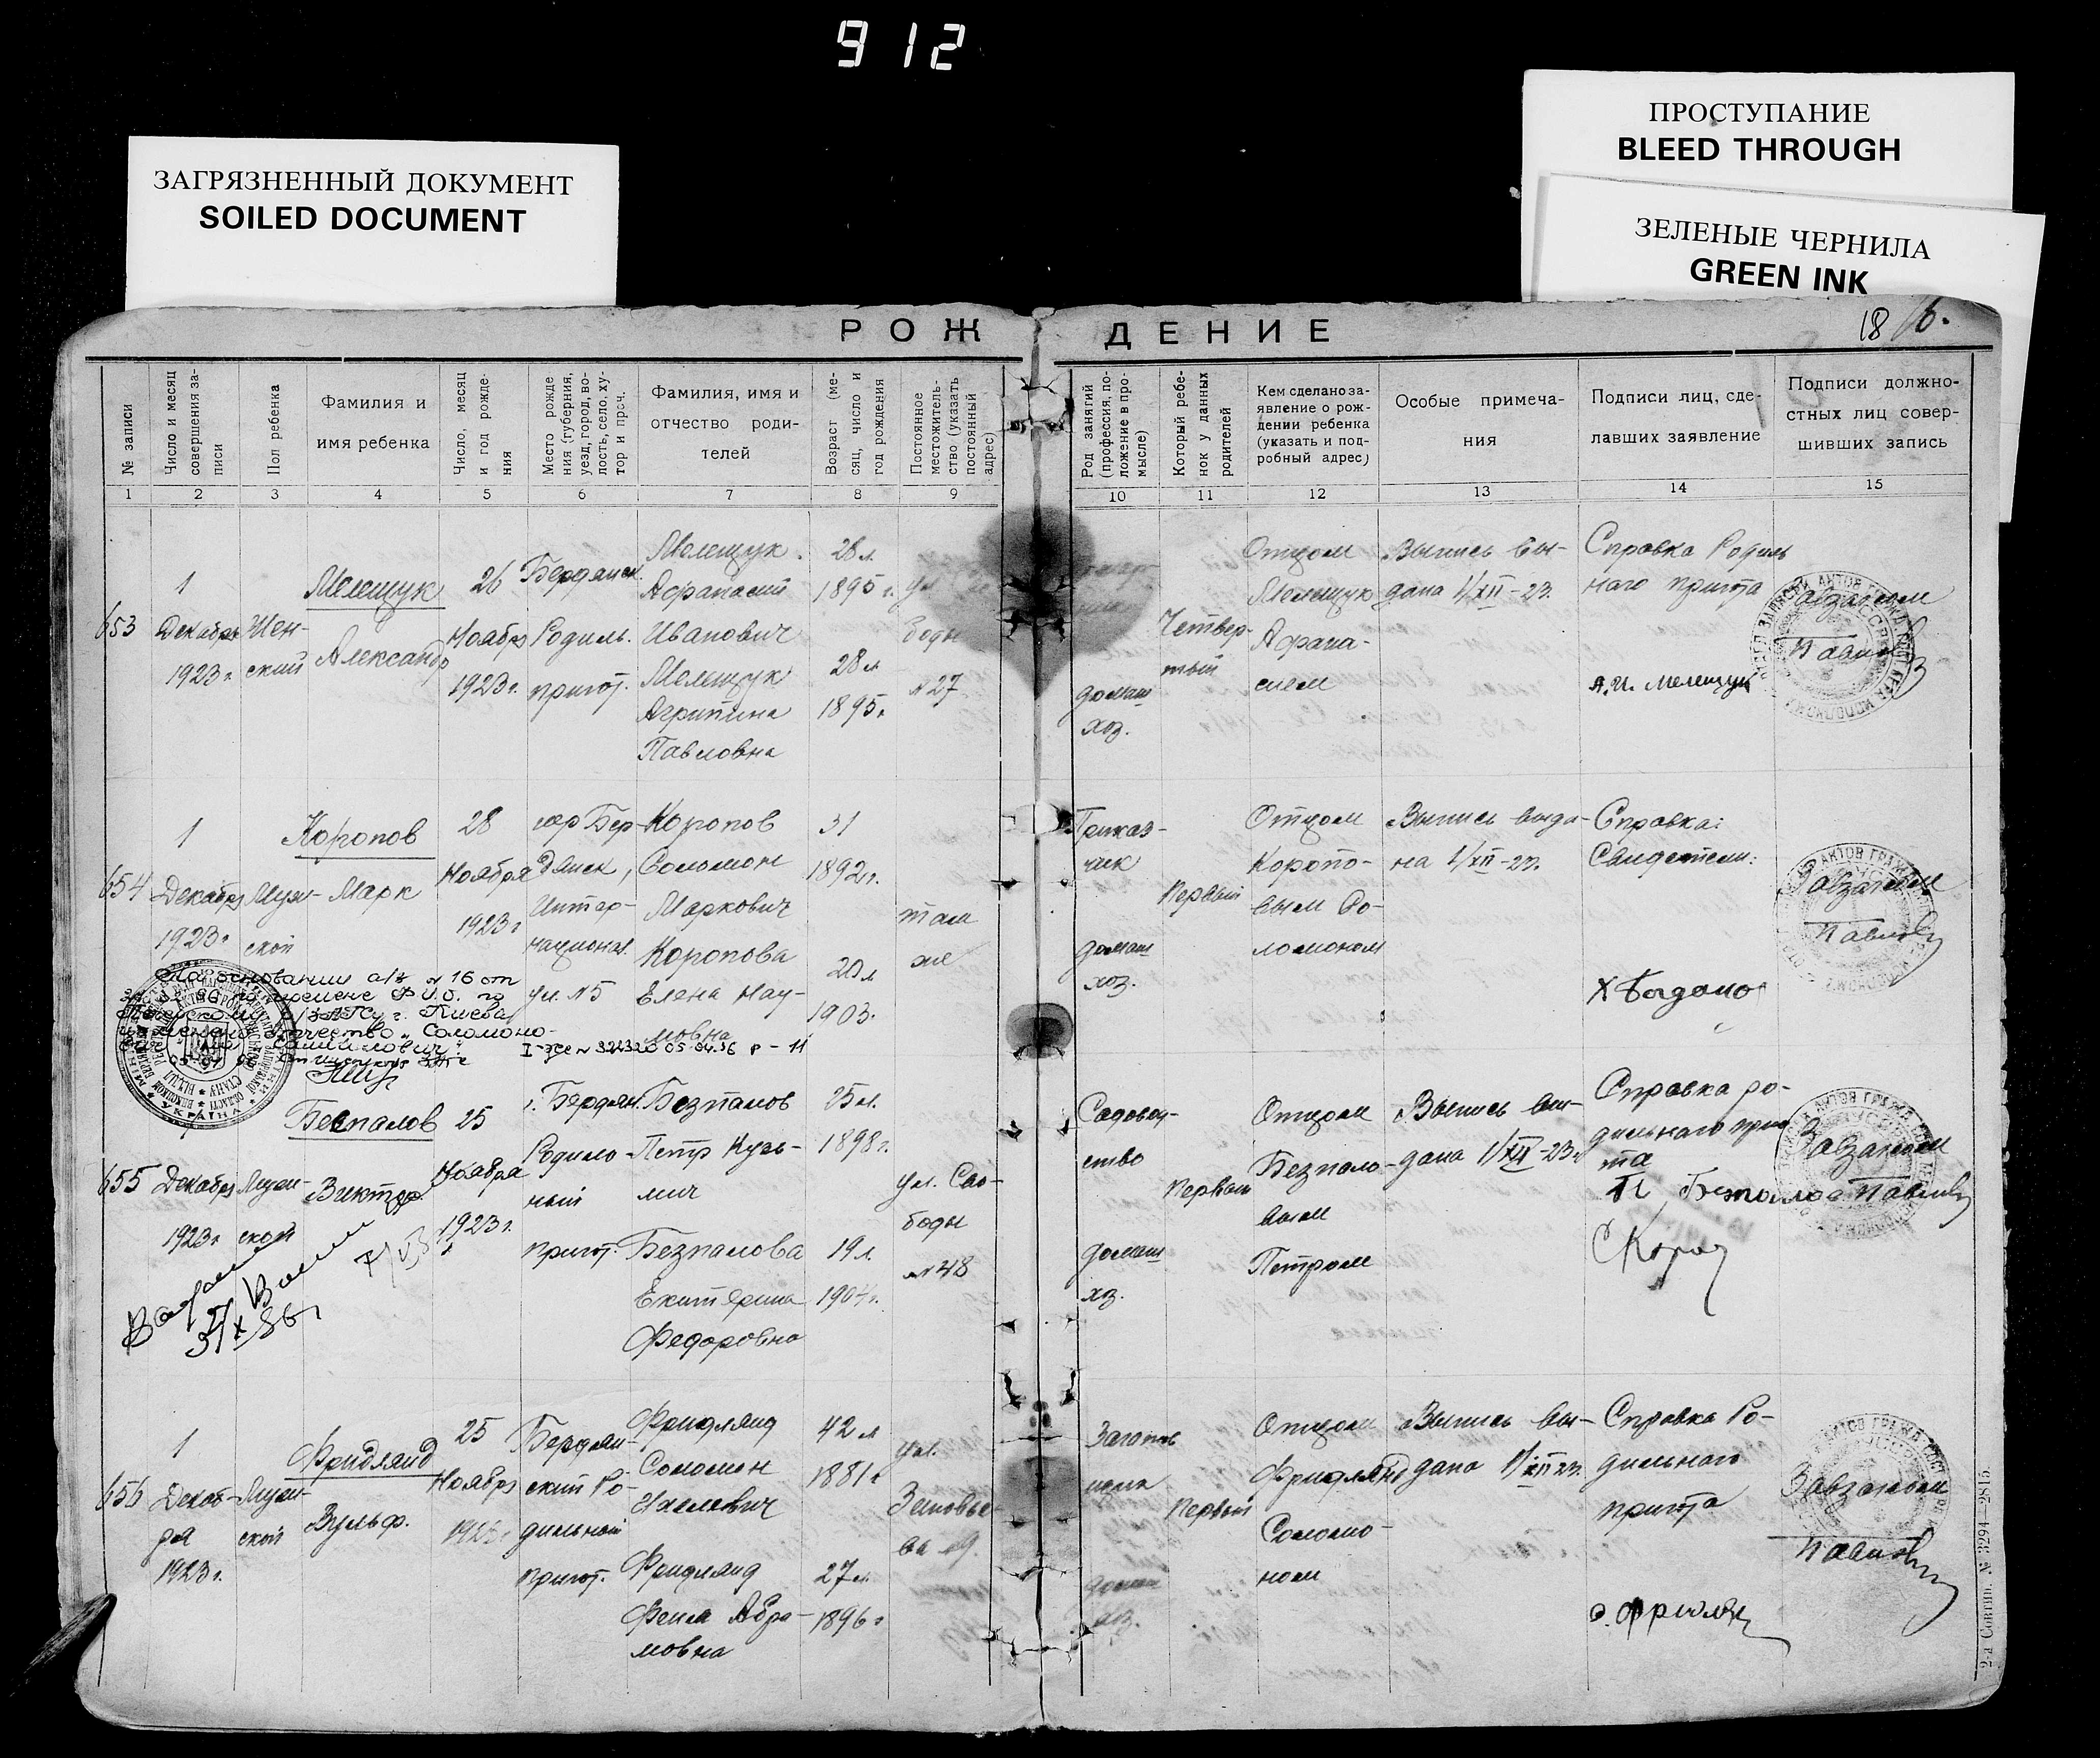 912
ЗАГРЯЗНЕННЫЙ ДОКУМЕНТ
SOILED DOCUMENT
ПРОСТУПАНИЕ
BLEED THROUGH
ЗЕЛЕНЫЕ ЧЕРНИЛА
GREEN INK
РОЖДЕНИЕ
18
№ записи
Число и месяц
совершения за-
писи
Пол ребенка
Фамилия и
имя ребенка
Число, месяц
и год рожде-
ния
Место рожде
ния (губерния,
уезд, город, во-
лость, село, ху-
тор и проч.
Фамилия, имя и
отчество роди-
телей
Возраст (ме-
сяц, число и
год рождения
Постоянное
местожитель-
ство (указать
постоянный
адрес)
Род занятий
(профессия, по-
ложение в про-
мысле)
Который ребе-
нок у данных
родителей
Кем сделано за-
явление о рож-
дении ребенка
(указать и под-
робный адрес)
Особые примеча-
ния
Подписи лиц, сде-
лавших заявление
Подписи должно-
стных лиц совер-
шивших запись
1 2 3 4 5 6 7 8 9 10 11 12 13 14 15
653
1
Декабря
1923 г.
Жен-
ский
Мелещук
Александр
26
Ноября
1923 г.
Бердянск
Родиль.
приют.
Мелещук
Афанасий
Иванович
Мелещук
Агрипина
Павловна
28 л.
1895 г.
28 л
1895 г
ул.
боды
№ 27
домаш
хоз.
Четвер-
тый
Отцом
Мелещук
Афана-
сием
Выпись вы-
дана 1/XII-23.
Справка Родиль
наго приюта
А.И. Мелещук
Завзагсом
654
1
Декабря
1923 г
Муж-
ской
Коропов
Марк
28
Ноября
1923 г
гор Бер-
дянск,
Интер-
национал.
ул. № 5
Коропов
Соломон
Маркович
Коропова
Елена Нау-
мовна
31
1892 г.
20 л
1903.
там
же
Приказ-
чик
домаш
хоз.
Первый
Отцом
Коропо-
вым Со-
ломоном
Выпись выда-
на 1/XII-23.
Справка:
Свидетели:
Завзагсом
На основании а/з № 16 от
о перемене Ф.И.О. по
г. Киева
отчество „Соломоно-
УКРАЇНА
655
Декабря
1923 г
Муж-
ской
Беспалов
Виктор
25
Ноября
1923 г.
г. Бердян.
Родиль-
ный
приют.
Безпалов
Петр Кузь-
мич
Безпалова
Екатерина
Федоровна
25 л.
1898 г.
19 л.
1904 г.
ул. Сво-
боды
№ 48
Садовод-
ство
домаш
хоз.
Первый
Отцом
Безпало-
вым
Петром
Выпись вы-
дана 1/XII-23 г
Справка ро-
дильнаго прию
та
П Безпалов
Завзагсом
656
1
Декаб-
ря
1923 г.
Муж-
ской
Фридлянд
Вульф.
25
Ноября
1923 г
Бердян-
ский Ро-
дильный
приют.
Фридлянд
Соломон
Фридлянд
Фейга Абра-
мовна
42 л
1881 г
27 л.
1896 г
ул.
Зиновье-
ва 19.
Первый
Отцом
Фридлянд
Соломо-
ном
Выпись вы-
дана 1/XII 23.
Справка Ро-
дильнаго
приюта
С. Фридлянд
Завзагсом
2-я Совтип. № 3294—2815